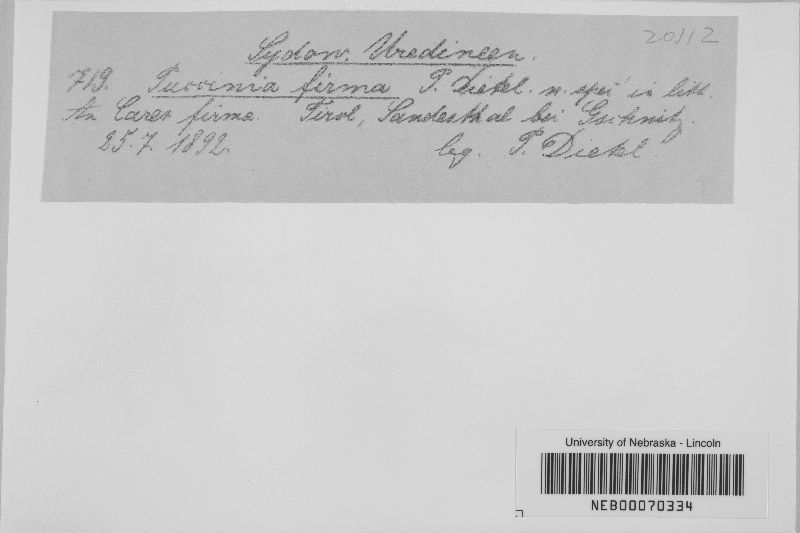 20112
Sydow. Uredineen.
719. Puccinia firma P. Dietel. n. spec. in litt.
An Carex firma. Tirol, Sandesthal bei Gschnitz.
25. 7. 1892. leg. P. Dietel.
University of Nebraska - Lincoln
NEB00070334